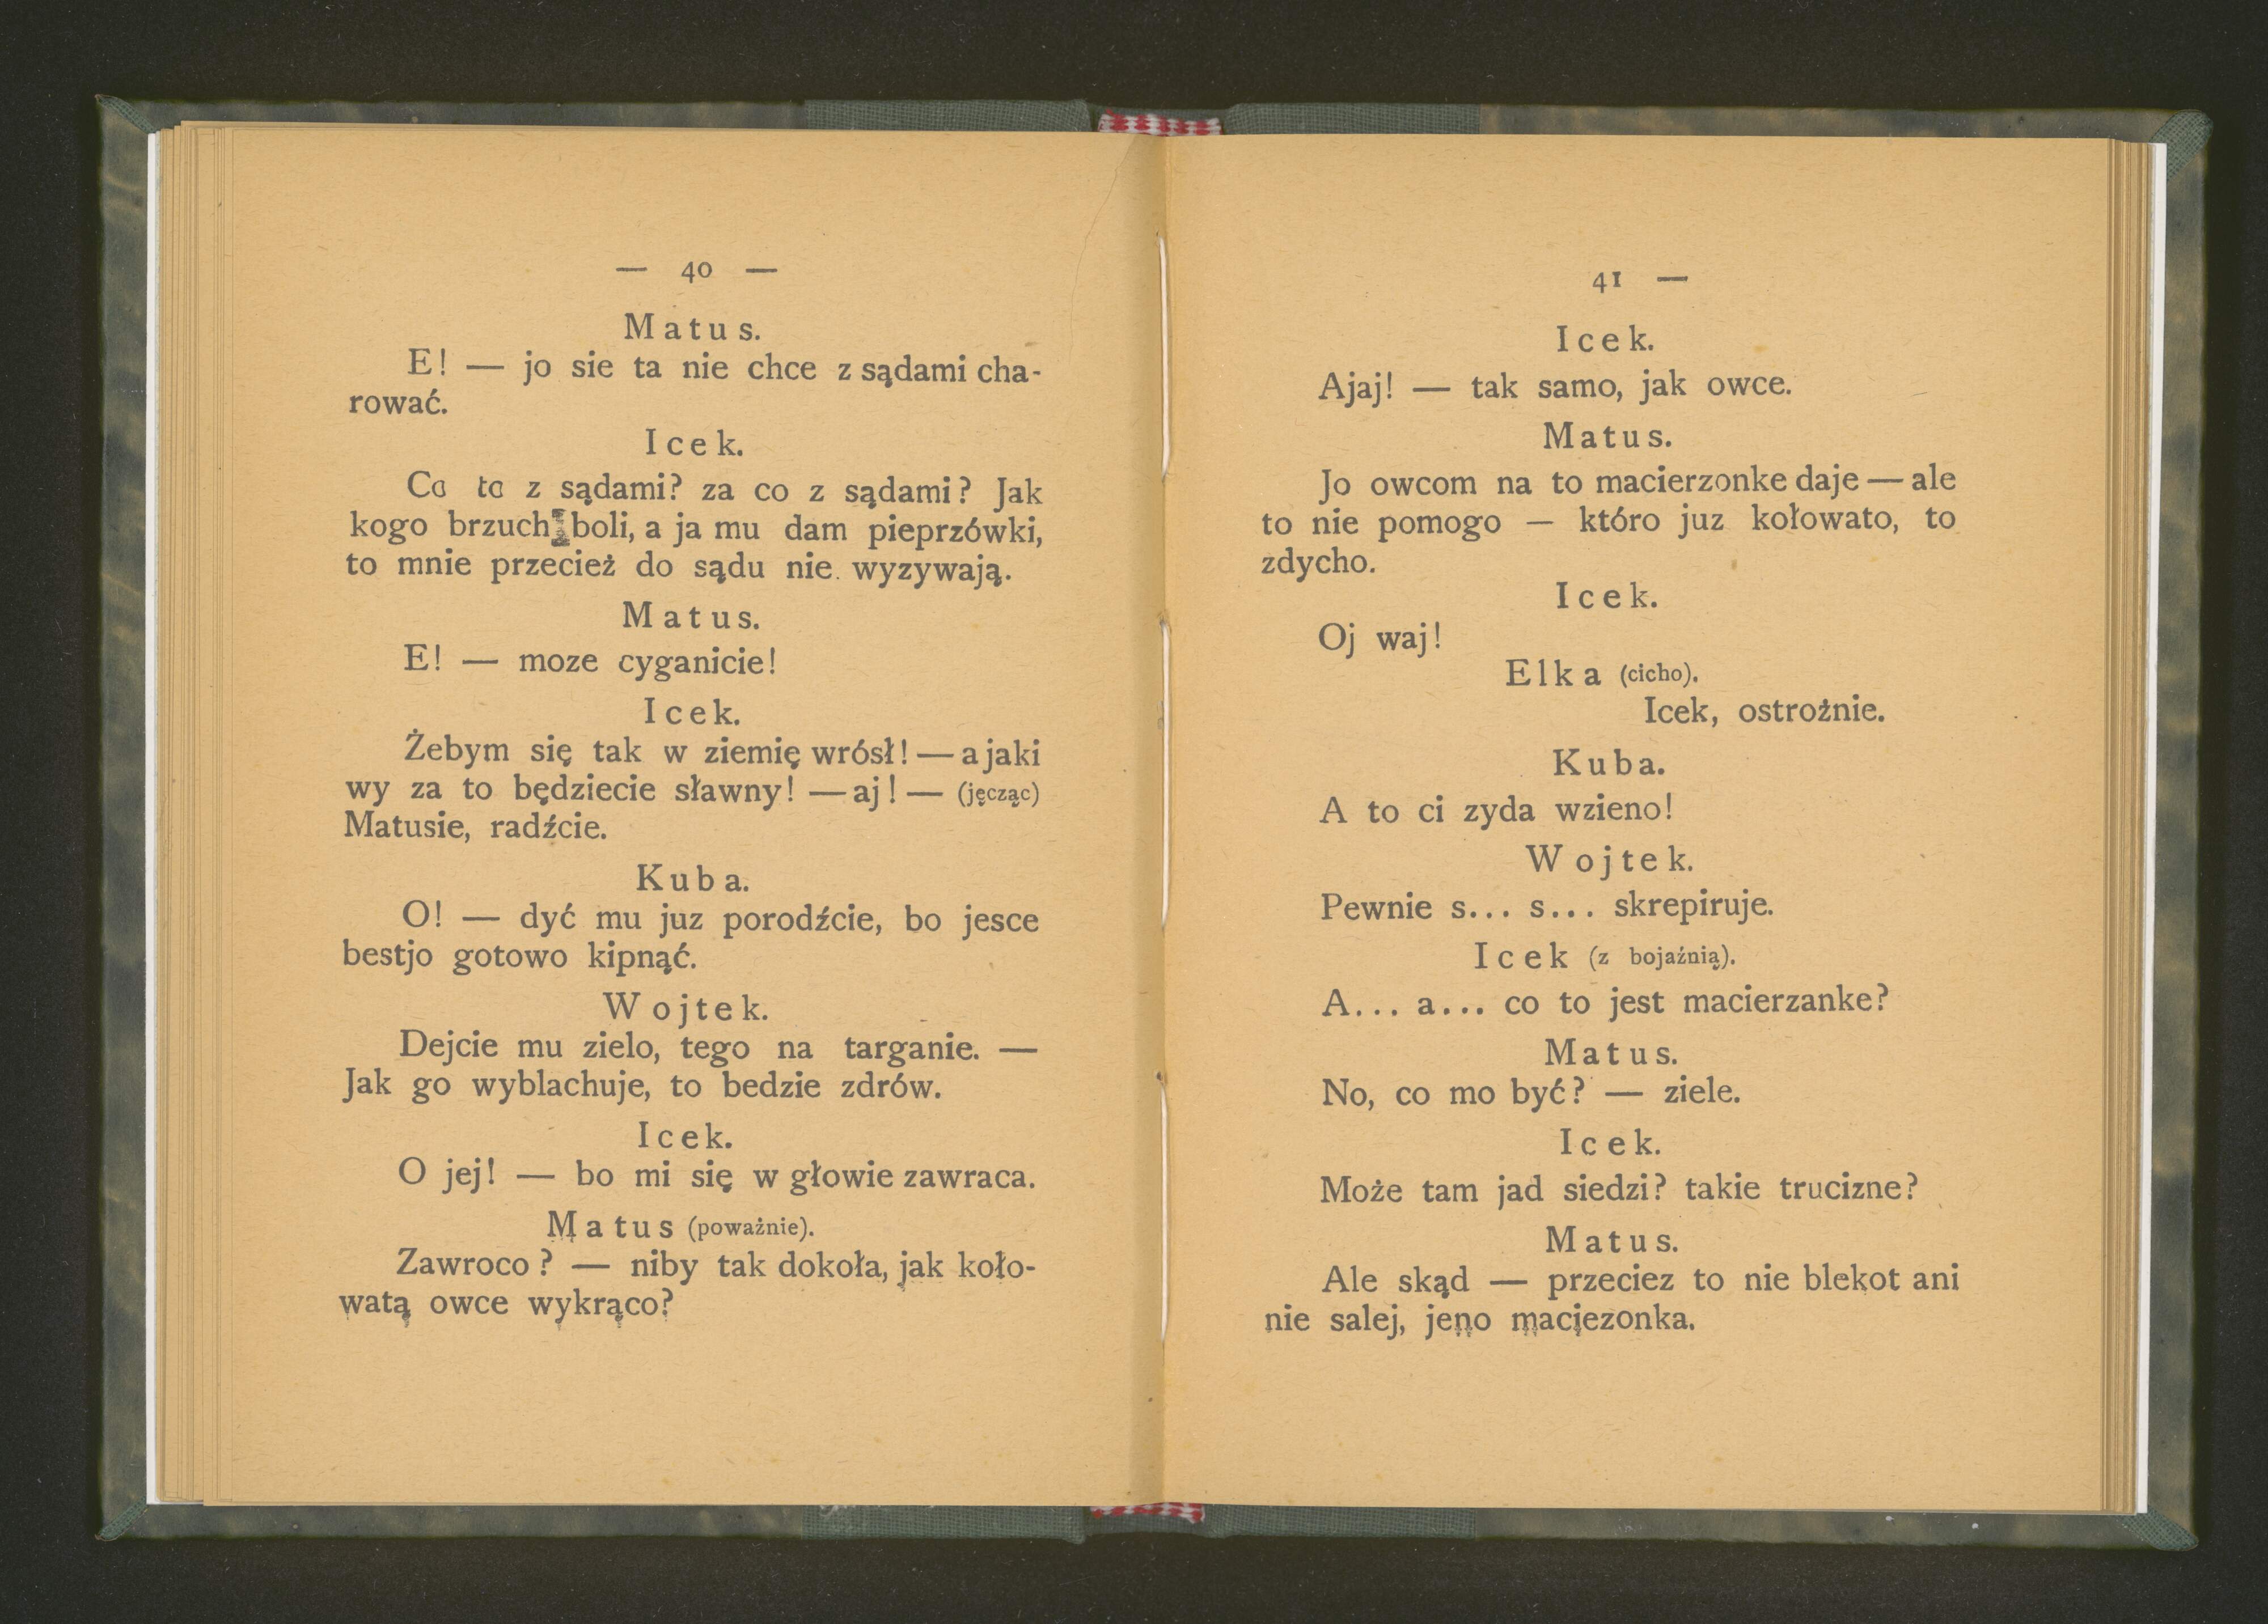 — 40 —
Matus.
E! — jo sie ta nie chce z sądami cha-
rować.
Icek.
Co to z sądami? za co z sądami? Jak
kogo brzuch boli, a ja mu dam pieprzówki,
to mnie przecież do sądu nie wyzywają.
Matus.
E! — moze cyganicie!
Icek.
Żebym się tak w ziemię wrósł! — a jaki
wy za to będziecie sławny! — aj! — (jęcząc)
Matusie, radźcie.
Kuba.
O! — dyć mu juz porodźcie, bo jesce
bestjo gotowo kipnąć.
Wojtek.
Dejcie mu zielo, tego na targanie. —
Jak go wyblachuje, to bedzie zdrów.
Icek.
O jej! — bo mi się w głowie zawraca.
Matus (poważnie).
Zawroco? — niby tak dokoła, jak koło-
watą owce wykrąco?
41 —
Icek.
Ajaj! — tak samo, jak owce.
Matus.
Jo owcom na to macierzonke daje — ale
to nie pomogo — któro juz kołowato, to
zdycho.
Icek.
Oj waj!
Elka (cicho).
Icek, ostrożnie.
Kuba.
A to ci zyda wzieno!
Wojtek.
Pewnie s... s... skrepiruje.
Icek (z bojaźnią).
A... a... co to jest macierzanke?
Matus.
No, co mo być? — ziele.
Icek.
Może tam jad siedzi? takie trucizne?
Matus.
Ale skąd — przeciez to nie blekot ani
nie salej, jeno maciezonka.